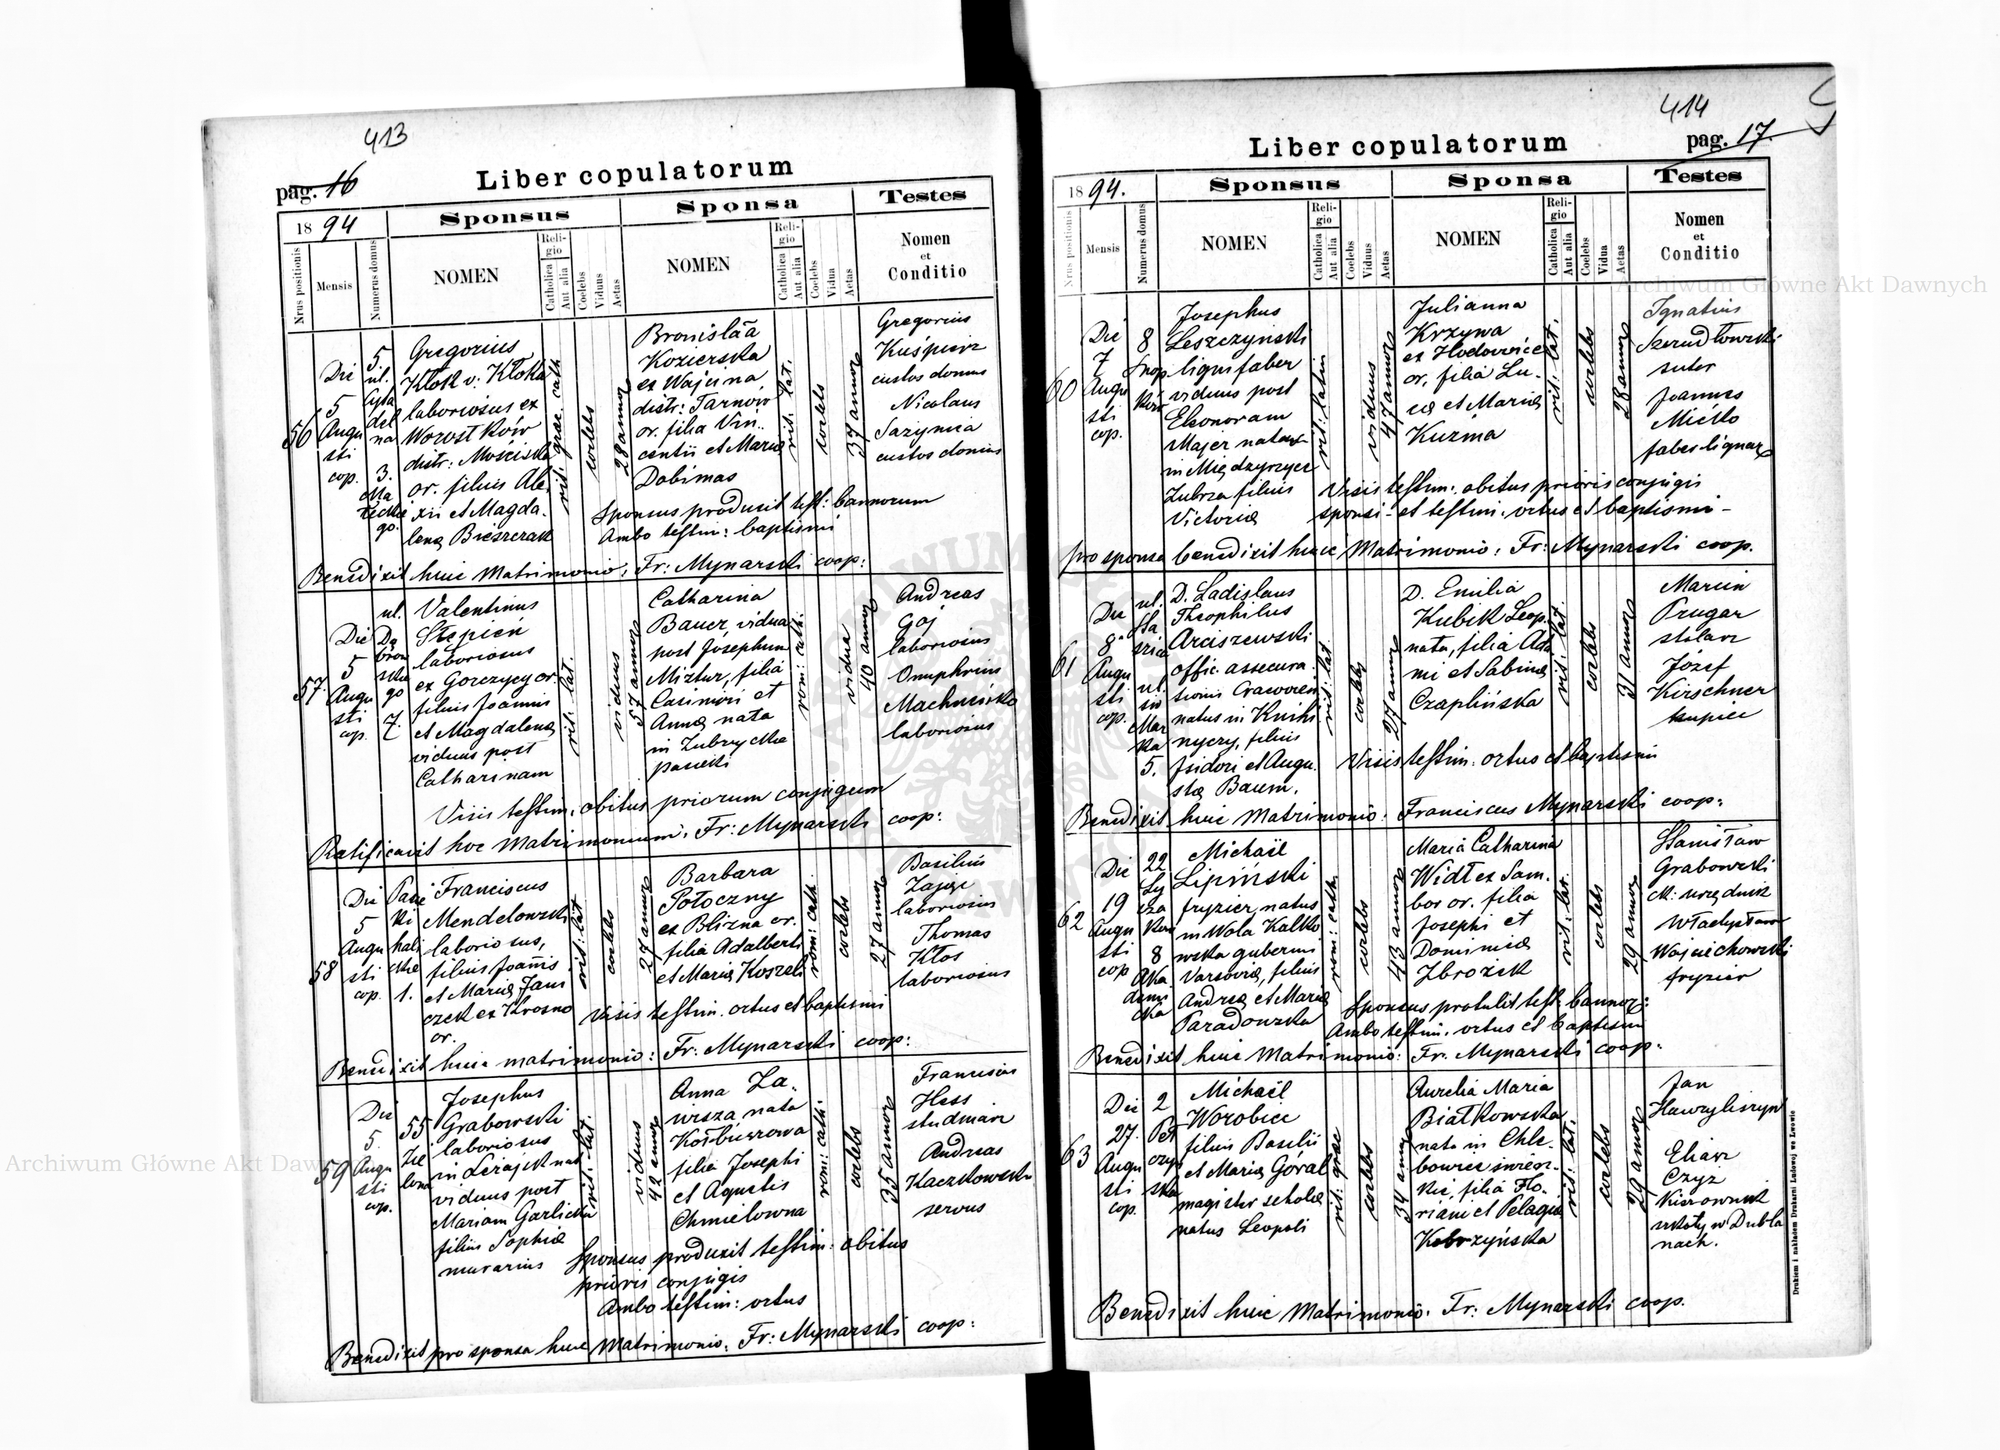 413
pag. 16
Liber copulatorum
18 94
Sponsus
Sponsa
Testes
Nrus positionis
Mensis
Numerus domus
NOMEN
Religio
Catholica
Aut alia
Coelebs
Viduus
Aetas
NOMEN
Religio
Catholica
Aut alia
Coelebs
Vidua
Aetas
Nomen
et
Conditio
56
Die
5
Augu
sti
cop.
5
ul.
Cyta
del
na
3.
Gregorius
Kłok v: Kłoka
laboriosus ex
distr: Mościska
or. filius Ale
xii et Magda.
lena
rit: graec. cath
coelebs
28 annor
Bronislaa
Kozierska
ex Wajcina
distr: Tarnow
or. filia Vin.
centii et Maria
Dobimas
rit: lat.
coelebs
37 annor
Gregorius
Kuśpierz
custos domus
Nicolaus
Sazynica
custos domus
Sponsus produxit test: bannorum
Ambo testim: baptismi
Benedixit huic Matrimonio: Fr: Mynarski coop:
57
Die
5
Augu
sti
cop.
ul.
Dą
brow
ska
go
7.
Valentinus
Stępień
laboriosus
ex Gorzycy or.
filius Joannis
et Magdalena
viduus post
Catharinam
rit: lat.
viduus
57 annor
Catharina
Bauer, vidua
post Josephum
Miztur, filia
Casimiri et
Anna nata
in Zubrzycka
pasieki
rom: cath:
vidua
40 annor
Andreas
Gaj
laboriosus
Onuphrius
laboriosus
Visis testim: obitus priorum conjugum
Ratificavit hoc Matrimonium: Fr: Mynarski coop:
58
Die
5
Augu
sti
cop.
1.
Franciscus
Mendelowski
laboriosus,
filius Joañis
et Maria Jani
czek ex Krosno
or.
rit: lat
coelebs
27 annor
Barbara
Potoczny
ex Blizna or.
filia Adalberti
et Maria Koszeli
rom: cath:
coelebs
27 annor
Basilius
Zając
laboriosus
Thomas
Kłos
laboriosus
Visis testim. ortus et baptismi
Benedixit huic matrimonio: Fr: Mynarski coop:
59
Die
5.
Augu
sti
cop.
55
Zie
lona
Josephus
Grabowski
laboriosus
in Leżajsk nat
viduus post
Mariam Garlicka
filius Sophia
murarius
rit: lat.
viduus
42 annor
Anna Za.
wisza nata
filia Josephi
et Agnetis
Chmielowna
rom: cath:
coelebs
35 annor
Franciscus
Hess
studniarz
Andreas
Kaczkowski
servus
Sponsus produxit testim: obitus
prioris conjugis
Ambo testim: ortus
Benedixit pro sponsa huic Matrimonio: Fr: Mynarski coop:
414
Liber copulatorum
pag. 17.
18 94.
Sponsus
Sponsa
Testes
Nrus positionis
Mensis
Numerus domus
NOMEN
Religio
Catholica
Aut alia
Coelebs
Viduus
Aetas
NOMEN
Religio
Catholica
Aut alia
Coelebs
Vidua
Aetas
Nomen
et
Conditio
60
Die
7
Augu
sti
cop.
8
Snop
ków
Josephus
Leszczynski
lignifaber
viduus post
Eleonoram
Majer natus
in Międzyrzyce
Zubrza filius
Victoria
rit: latin
viduus
47 annor
Julianna
Krzywa
ex Hodowice
or, filia Lu-
ca et Maria
Kuzma
rit: lat.
coelebs
28 annor
Ignatius
Szrudłowski
sutor
Joannes
Miśko
faber lignar
Visis testim: obitus prioris conjugis
sponsi - et testim. ortus et baptismi -
pro sponsa benedixit huic Matrimonio: Fr: Mynarski coop.
61
Die
8
Augu
sti
cop.
ul.
Sta
szica
ul.
św
Mar
ka
5.
D. Ladislaus
Theophilus
Arciszewski
offic. assecura
tionis Cracovien
natus in Knihi
nyczy, filius
Isidori et Augu.
sta Baum.
rit: lat.
coelebs
27 annor
D. Emilia
Kubik Leop.
nata, filia Ada
mi et Sabina
Czaplińska
rit: lat.
coelebs
31 annor
Marcin
Prugar
stolarz
Józef
Kirschner
kupiec
Visis testim: ortus et baptismi
Benedixit huic Matrimonio: Franciscus Mynarski coop:
62
Die
19
Augu
sti
cop
22
Ły
cza
kow
8
Aka
demi
cka
Michaël
Lipiński
fryzier, natus
in Wola Kałko
wska guberni
Varsovia, filius
Andrea et Maria
Paradowska
rom: cath.
coelebs
43 annor
Maria Catharina
Widł ex Sam.
bor or. filia
Josephi et
Dominica
Zbrożek
rit: lat.
coelebs
29 annor
Stanisław
Grabowski
ck: urzędnik
Władysław
Wojciechowski
fryzier
Sponsus protulit test: bannor:
Ambo testim. ortus et baptismi
Benedixit huic Matrimonio: Fr. Mynarski coop.
63
Die
27.
Augu
sti
cop.
2
Peł
czyń
ska
Michaël
Worobiec
filius Basilii
et Maria Góral
magister schola
natus Leopoli
rit: graec
coelebs
34 annor
Aurelia Maria
Białkowska
nata in Chle-
bowice świrz-
kie, filia Flo-
riani et Pelagia
Kobrzyńska
rit: lat.
coelebs
29 annor
Jan
Hawryliszyn
Eliasz
Czyż
Kierownik
szkoły w Dubla
nach.
Benedixit huic Matrimonio: Fr: Mynarski coop.
Drukiem i nakładem Drukarni Ludowej we Lwowie
Archiwum Główne Akt Dawnych
Archiwum Główne Akt Dawnych